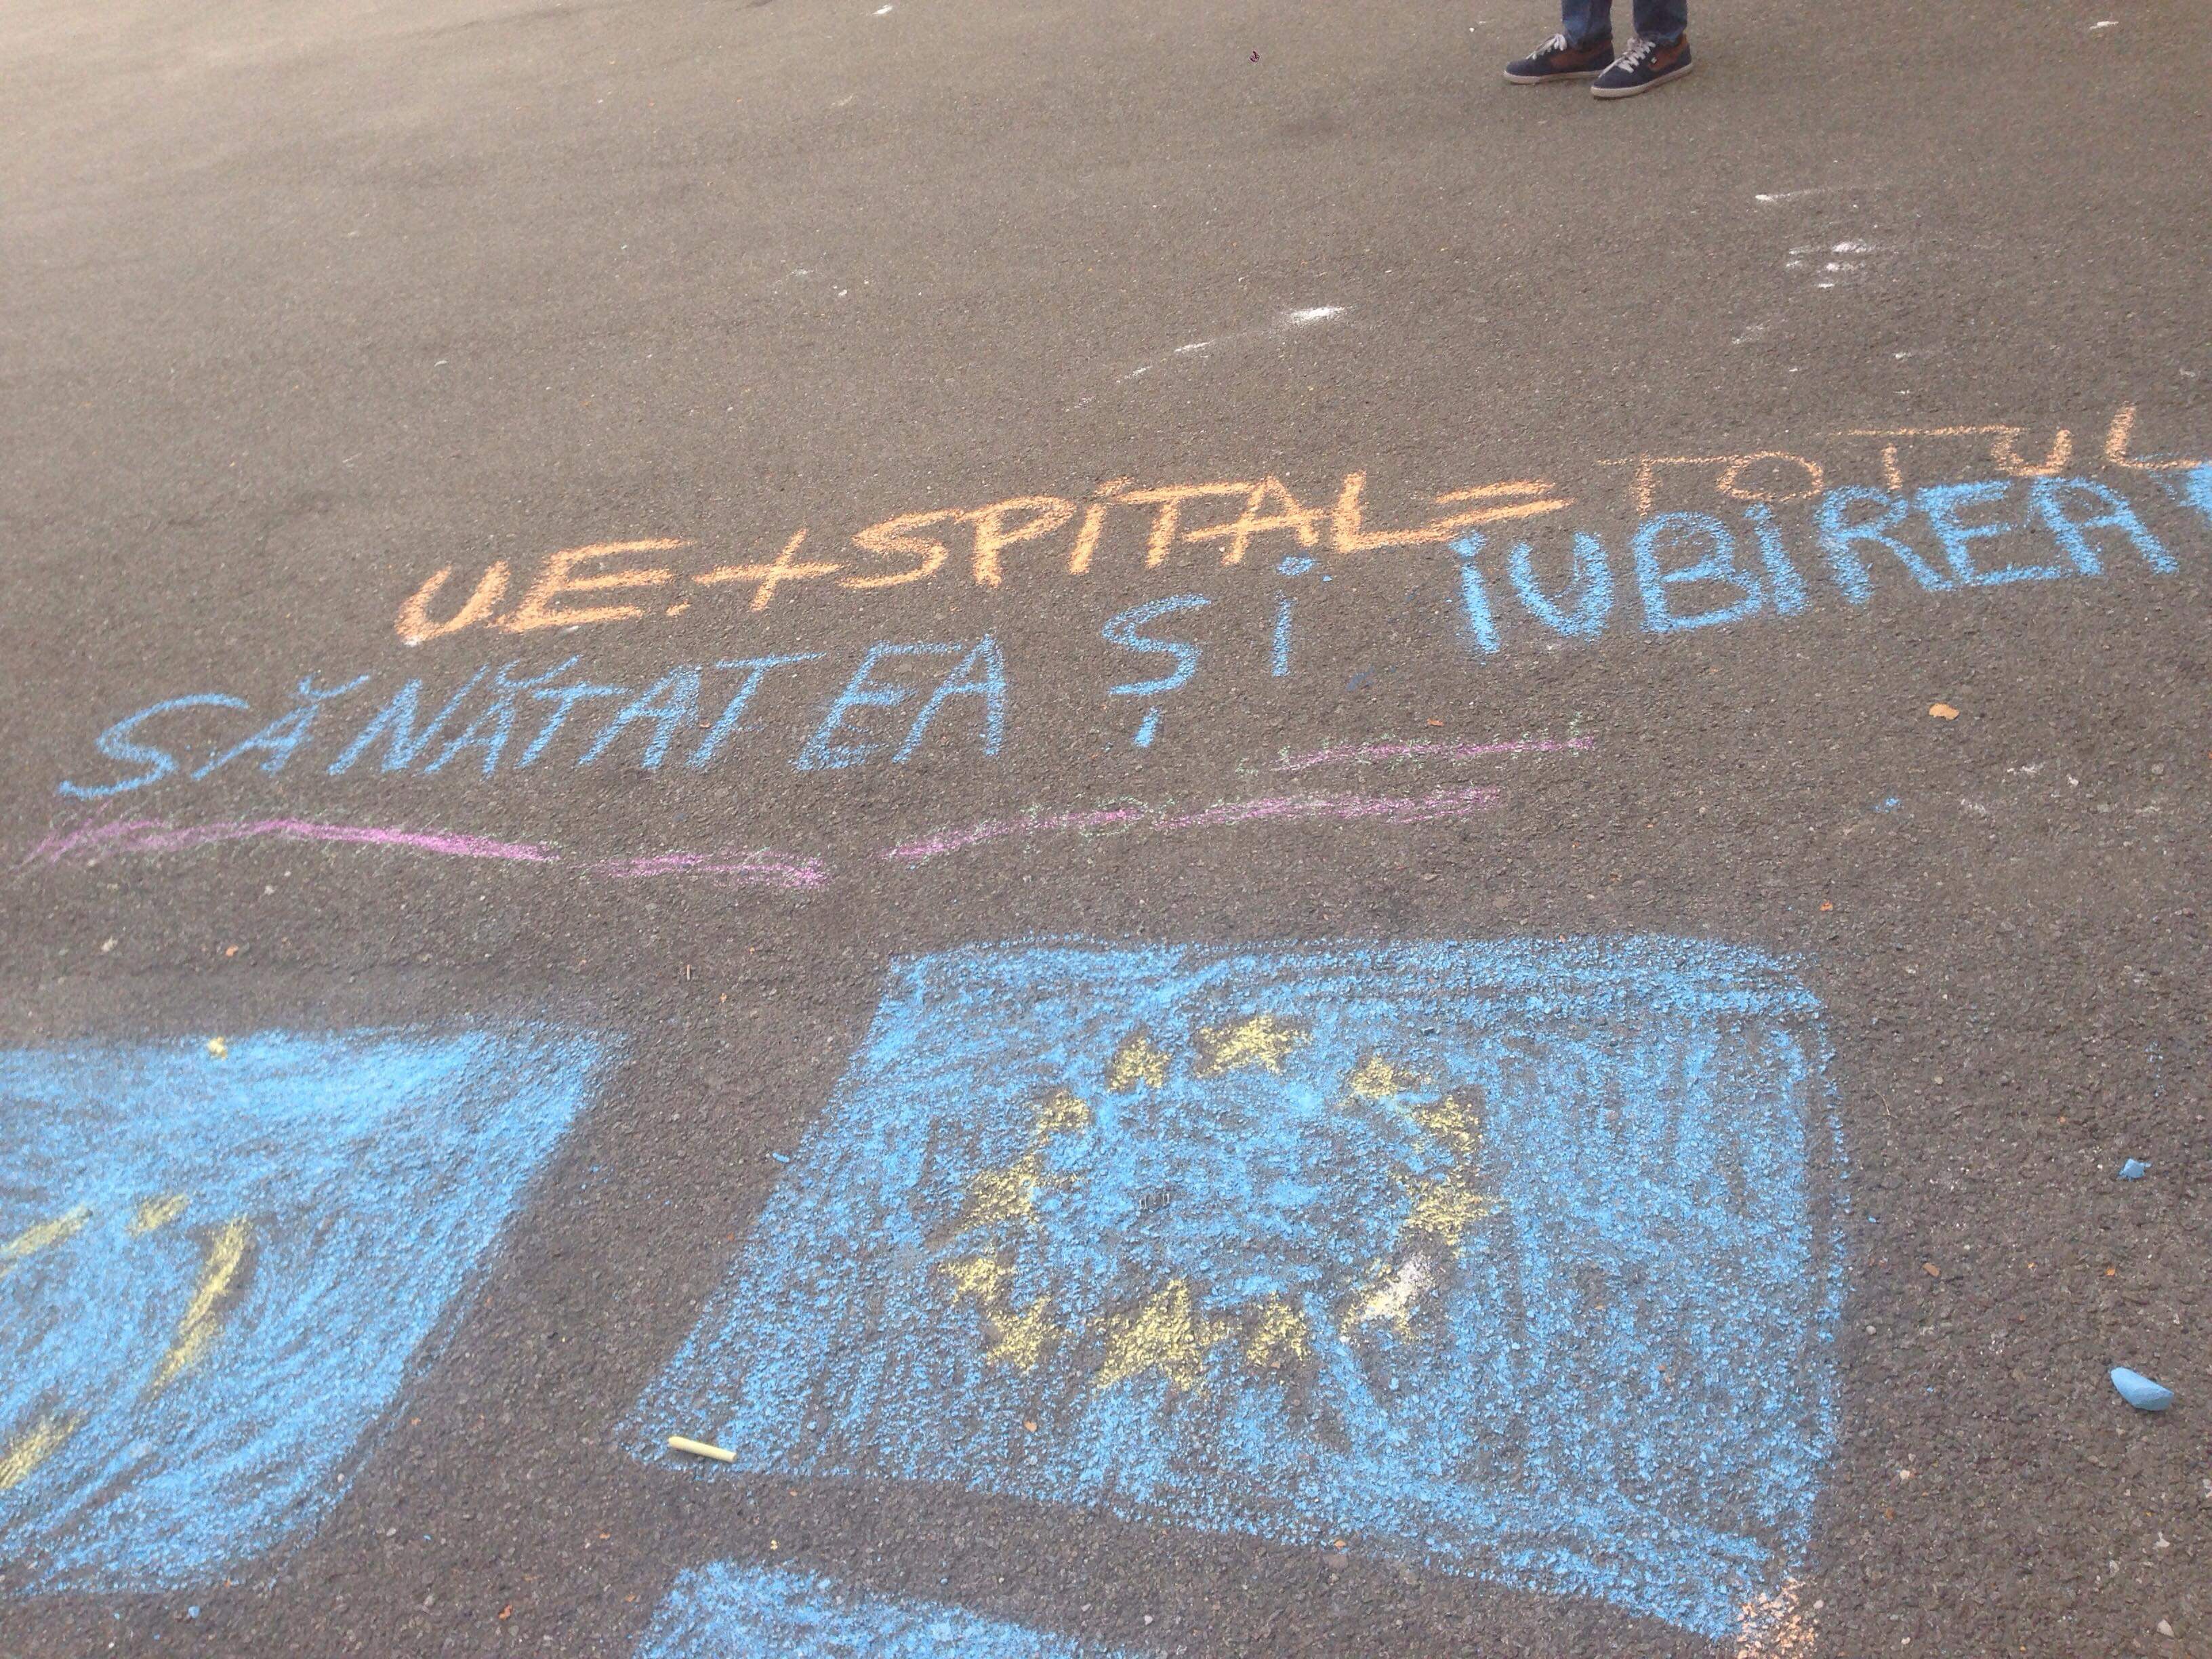 U.E.+SPITAL=TOTUL
SĂNĂTATEA ȘI IUBIREA